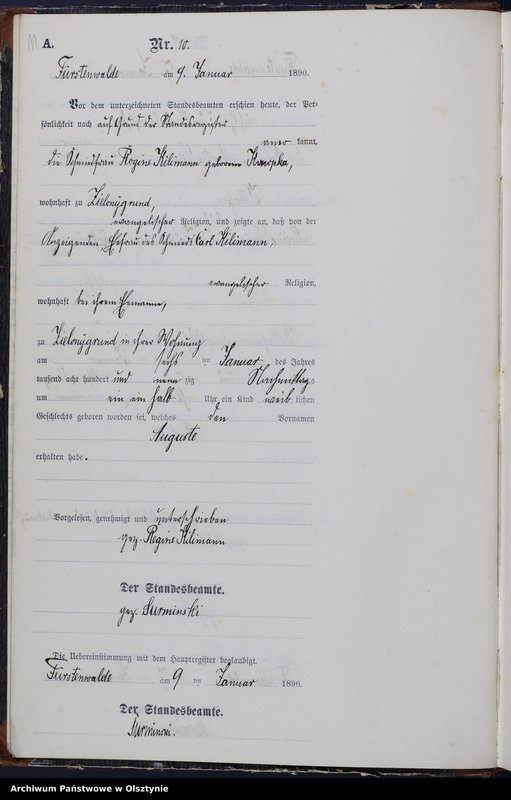 A.
Nr. 10.
Fürstenwalde am 9. Januar 1890.
Vor dem unterzeichneten Standesbeamten erschien heute, der Per-
sönlichkeit nach auf Grund der Standesregister
aner kannt,
die Schmiedfrau Regine Kilimann geborene Konopka,
wohnhaft zu Zielonygrund,
evangelischer Religion, und zeigte an, daß von der
Anzeigenden Ehefrau des Schmieds Carl Kilimann,
evangelischer Religion,
wohnhaft bei ihrem Ehemanne,
zu Zielonygrund in ihrer Wohnung
am sechs ten Januar des Jahres
tausend acht hundert und neun zig Nachmittags
um ein ein halb Uhr ein Kind weib lichen
Geschlechts geboren worden sei, welches den Vornamen
Auguste
erhalten habe.
Vorgelesen, genehmigt und unterschrieben
gez. Regine Kilimann
Der Standesbeamte.
gez. Surminski
Die Uebereinstimmung mit dem Hauptregister beglaubigt.
Fürstenwalde am 9 ten Januar 1890.
Der Standesbeamte.
Surminski.
Archiwum Państwowe w Olsztynie